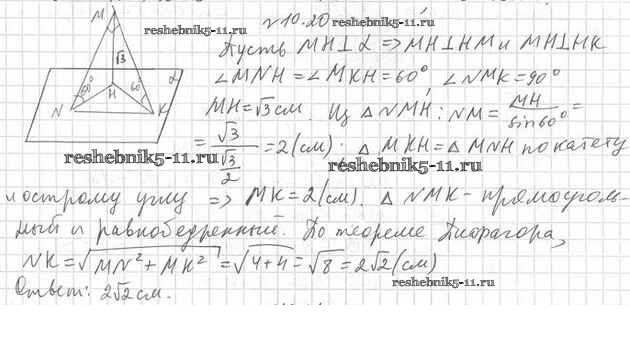 №10.20
reshebnik5-11.ru
reshebnik5-11.ru
Пусть MH⊥α => MH⊥HM и MH⊥HK
∠MNH = ∠MKH = 60° ∠NMK = 90°
MH = √3 см. Из △NMH: NM = MH/sin60° =
= √3/(√3/2) = 2 (см). △MKH = △MNH по катету
reshebnik5-11.ru
reshebnik5-11.ru
и острому углу => MK = 2 (см). △NMK - прямоуголь-
ный и равнобедренный. По теореме Пифагора,
NK = √(MN² + MK²) = √(4+4) = √8 = 2√2 (см)
Ответ: 2√2 см.
reshebnik5-11.ru
M
√3
α
60°
60°
H
N
K